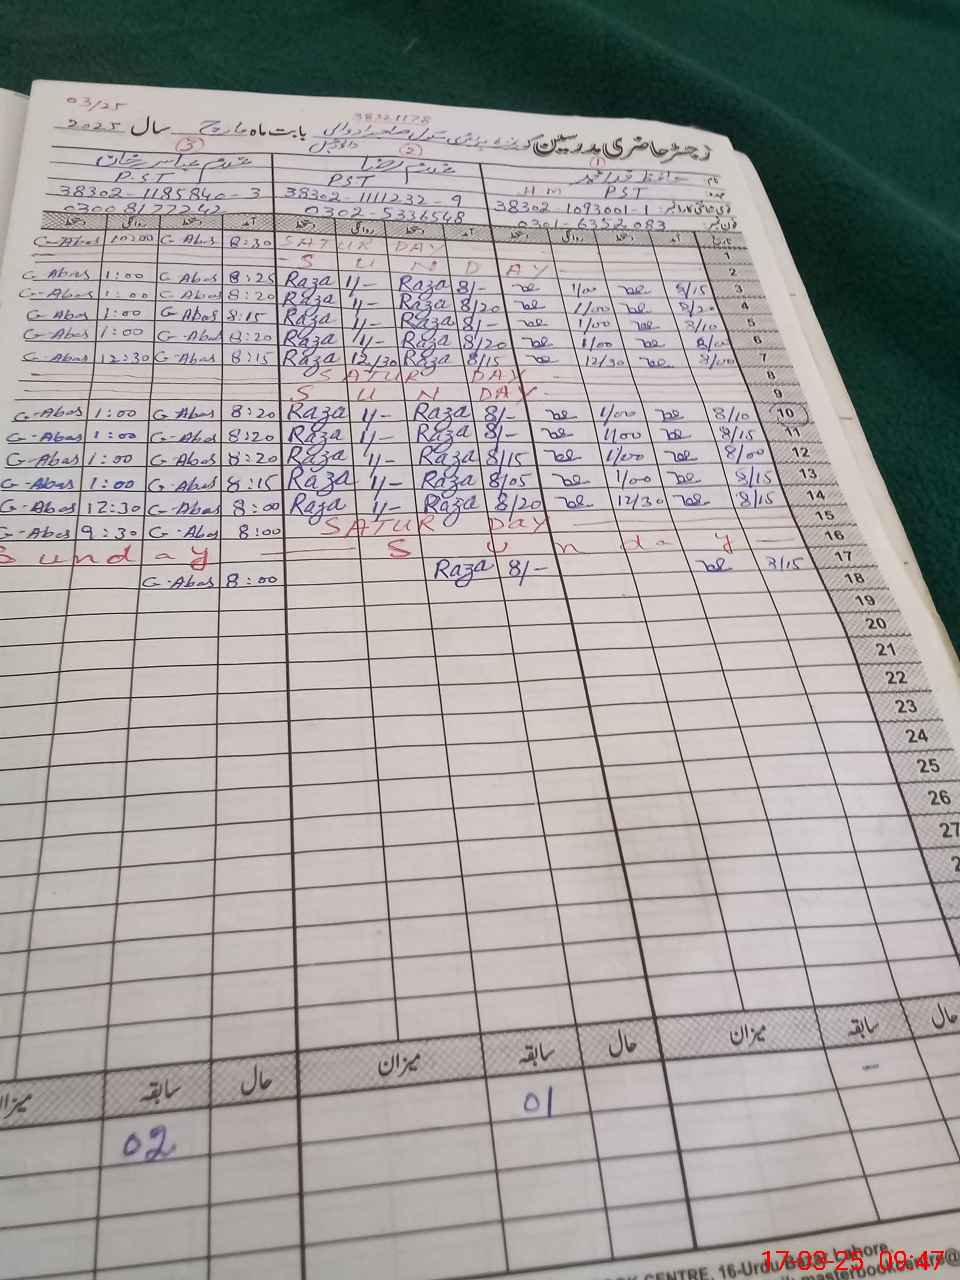 03/25
38321178
رجسٹر حاضری مدرسین بابت ماہ مارچ سال 2025
③ ② ①
نام
PST PST HM PST عہدہ
38302-1185840-3 38302-1111232-9 38302-1093001-1
0300 8177242 0302-5336548 0301-6352083
دستخط روانگی دستخط آمد دستخط روانگی دستخط آمد دستخط روانگی دستخط آمد تاریخ
G-Abas 10:00 G-Abas 8:30 SATUR DAY 1
S U N D AY 2
G-Abas 1:00 G-Abas 8:25 Raza 1/- Raza 8/- 1/00 8/15 3
G-Abas 1:00 G-Abas 8:20 Raza 1/- Raza 8/20 1/00 8/20 4
G-Abas 1:00 G-Abas 8:15 Raza 1/- Raza 8/- 1/00 8/10 5
G-Abas 1:00 G-Abas 8:20 Raza 1/- Raza 8/20 1/00 6
G-Abas 12:30 G-Abas 8:15 Raza 12/30 Raza 8/15 12/30 8/00 7
SATUR DAY 8
S U N DAY 9
G-Abas 1:00 G-Abas 8:20 Raza 1/- Raza 8/- 1/00 8/10 10
G-Abas 1:00 G-Abas 8:20 Raza 1/- Raza 8/- 1/00 8/15 11
G-Abas 1:00 G-Abas 8:20 Raza 1/- Raza 8/15 1/00 8/00 12
G-Abas 1:00 G-Abas 8:15 Raza 1/- Raza 8/05 1/00 8/15 13
G-Abas 12:30 G-Abas 8:00 Raza 1/- Raza 8/20 12/30 8/15 14
G-Abas 9:30 G-Abas 8:00 SATUR DAY 15
Sunday S u n d a y 16
G-Abas 8:00 Raza 8/- 8/15 17
18
19
20
21
22
23
24
25
26
27
2
میزان سابقہ حال میزان سابقہ حال میزان سابقہ حال
02 01 -
CENTRE, 16-Urdu Bazar Lahore
17-03-25 09:47